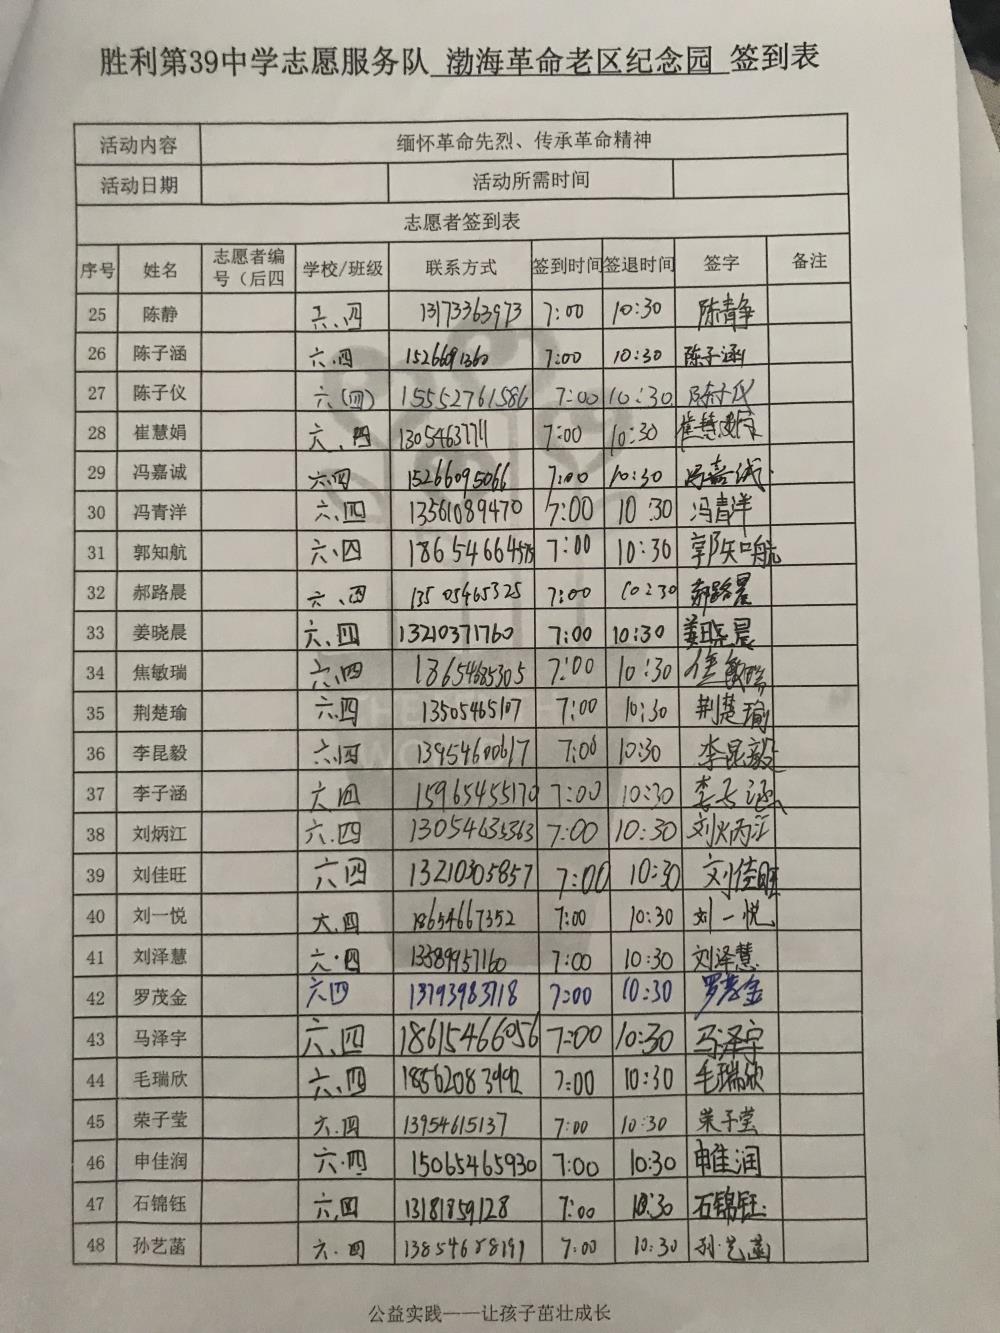 胜利第39中学志愿服务队 渤海革命老区纪念园 签到表
活动内容 缅怀革命先烈、传承革命精神
活动日期 活动所需时间
志愿者签到表
序号 姓名 志愿者编号（后四 学校/班级 联系方式 签到时间 签退时间 签字 备注
25 陈静 六.四 13173363973 7:00 10:30 陈静
26 陈子涵 六.四 1526691360 7:00 10:30 陈子涵
27 陈子仪 六(四) 15552761586 7:00 10:30 陈子仪
28 崔慧娟 六.四 1305463771 7:00 10:30 崔慧娟
29 冯嘉诚 六.四 15266095066 7:00 10:30 冯嘉诚
30 冯青洋 六.四 13561089470 7:00 10:30 冯青洋
31 郭知航 六.四 18654664575 7:00 10:30 郭知航
32 郝路晨 六.四 13505465325 7:00 10:30 郝路晨
33 姜晓晨 六.四 13210371760 7:00 10:30 姜晓晨
34 焦敏瑞 六.四 18654685305 7:00 10:30 焦敏瑞
35 荆楚瑜 六.四 13505465107 7:00 10:30 荆楚瑜
36 李昆毅 六.四 13954600617 7:00 10:30 李昆毅
37 李子涵 六.四 15965455170 7:00 10:30 李子涵
38 刘炳江 六.四 13054635363 7:00 10:30 刘炳江
39 刘佳旺 六四 13210305857 7:00 10:30 刘佳旺
40 刘一悦 六.四 18654667352 7:00 10:30 刘一悦
41 刘泽慧 六.四 13589957160 7:00 10:30 刘泽慧
42 罗茂金 六四 13793983718 7:00 10:30 罗茂金
43 马泽宇 六.四 18615466056 7:00 10:30 马泽宇
44 毛瑞欣 六.四 18562083992 7:00 10:30 毛瑞欣
45 荣子莹 六.四 13954615137 7:00 10:30 荣子莹
46 申佳润 六.四 15065465930 7:00 10:30 申佳润
47 石锦钰 六.四 13181859128 7:00 10:30 石锦钰
48 孙艺菡 六.四 13854688191 7:00 10:30 孙艺菡
公益实践——让孩子茁壮成长